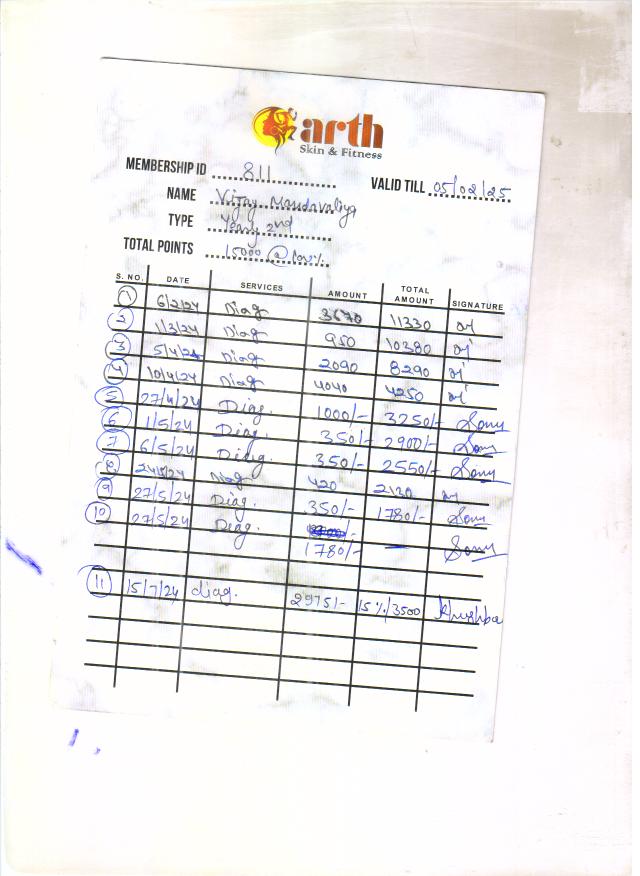 arth
Skin & Fitness
MEMBERSHIP ID 811
VALID TILL 05/02/25
NAME Vijay Mandavaliya
TYPE Yearly 2nd
TOTAL POINTS 15000 @ 100%
S. NO. DATE SERVICES AMOUNT TOTAL AMOUNT SIGNATURE
1 6/2/24 Diag 3670 11330
2 1/3/24 Diag 950 10380
3 5/4/24 Diag 2090 8290
4 10/4/24 Diag 4040 4250
5 27/4/24 Diag. 1000/- 3250/- Sony
6 1/5/24 Diag. 350/- 2900/- Sony
7 6/5/24 Diag. 350/- 2550/- Sony
8 24/5/24 Diag. 420 2130
9 27/5/24 Diag. 350/- 1780/- Sony
10 27/5/24 Diag. Sony
1780/- —
11 15/7/24 diag. 2975/- 15%/3500 Khushboo